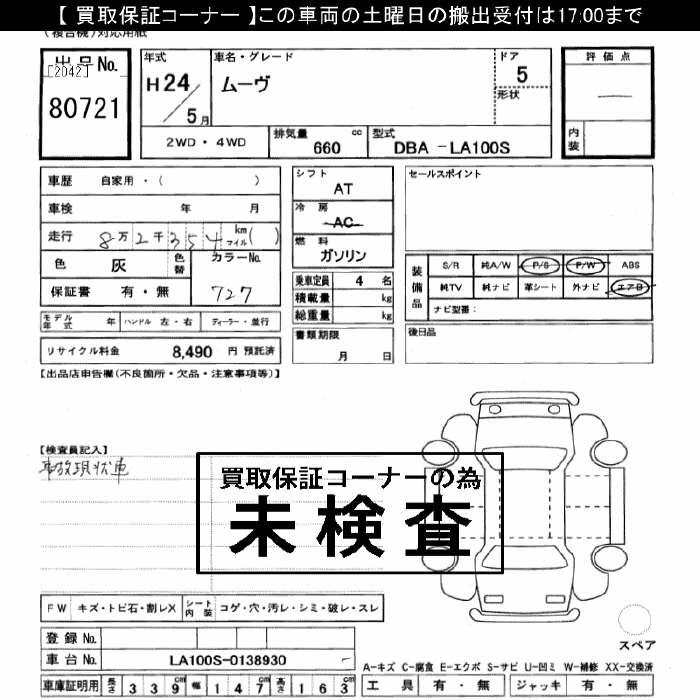 【 買取保証コーナー 】この車両の土曜日の搬出受付は17:00まで
(複合機)対応用紙
出品No.
[2042]
80721
年式
H24/5月
車名・グレード
ムーヴ
ドア
5
形状
評価点
内装
2WD・4WD
排気量 660 cc
型式 DBA -LA100S
車歴 自家用・( )
車検 年 月
走行 8万2千354 km マイル( )
色 灰 色替
カラーNo. 727
保証書 有・無
モデル年式 年 ハンドル 左・右 ディーラー・並行
リサイクル料金 8,490 円 預託済
シフト
AT
冷房
AC
燃料
ガソリン
乗車定員 4 名
積載量 kg
総重量 kg
書類期限
月 日
セールスポイント
装備品
S/R 純A/W P/S P/W ABS
純TV 純ナビ 革シート 外ナビ エアB
ナビ型番:
後日品
【出品店申告欄(不良箇所・欠品・注意事項等)】
【検査員記入】
事故現状車
買取保証コーナーの為
未検査
FW キズ・トビ石・割レX
シート内装 コゲ・穴・汚レ・シミ・破レ・スレ
登録No.
車台No. LA100S-0138930
スペア
A-キズ C-腐食 E-エクボ S-サビ U-凹ミ W-補修 XX-交換済
車庫証明用 長さ 339 cm 幅 147 cm 高さ 163 cm
工具 有・無 ジャッキ 有・無